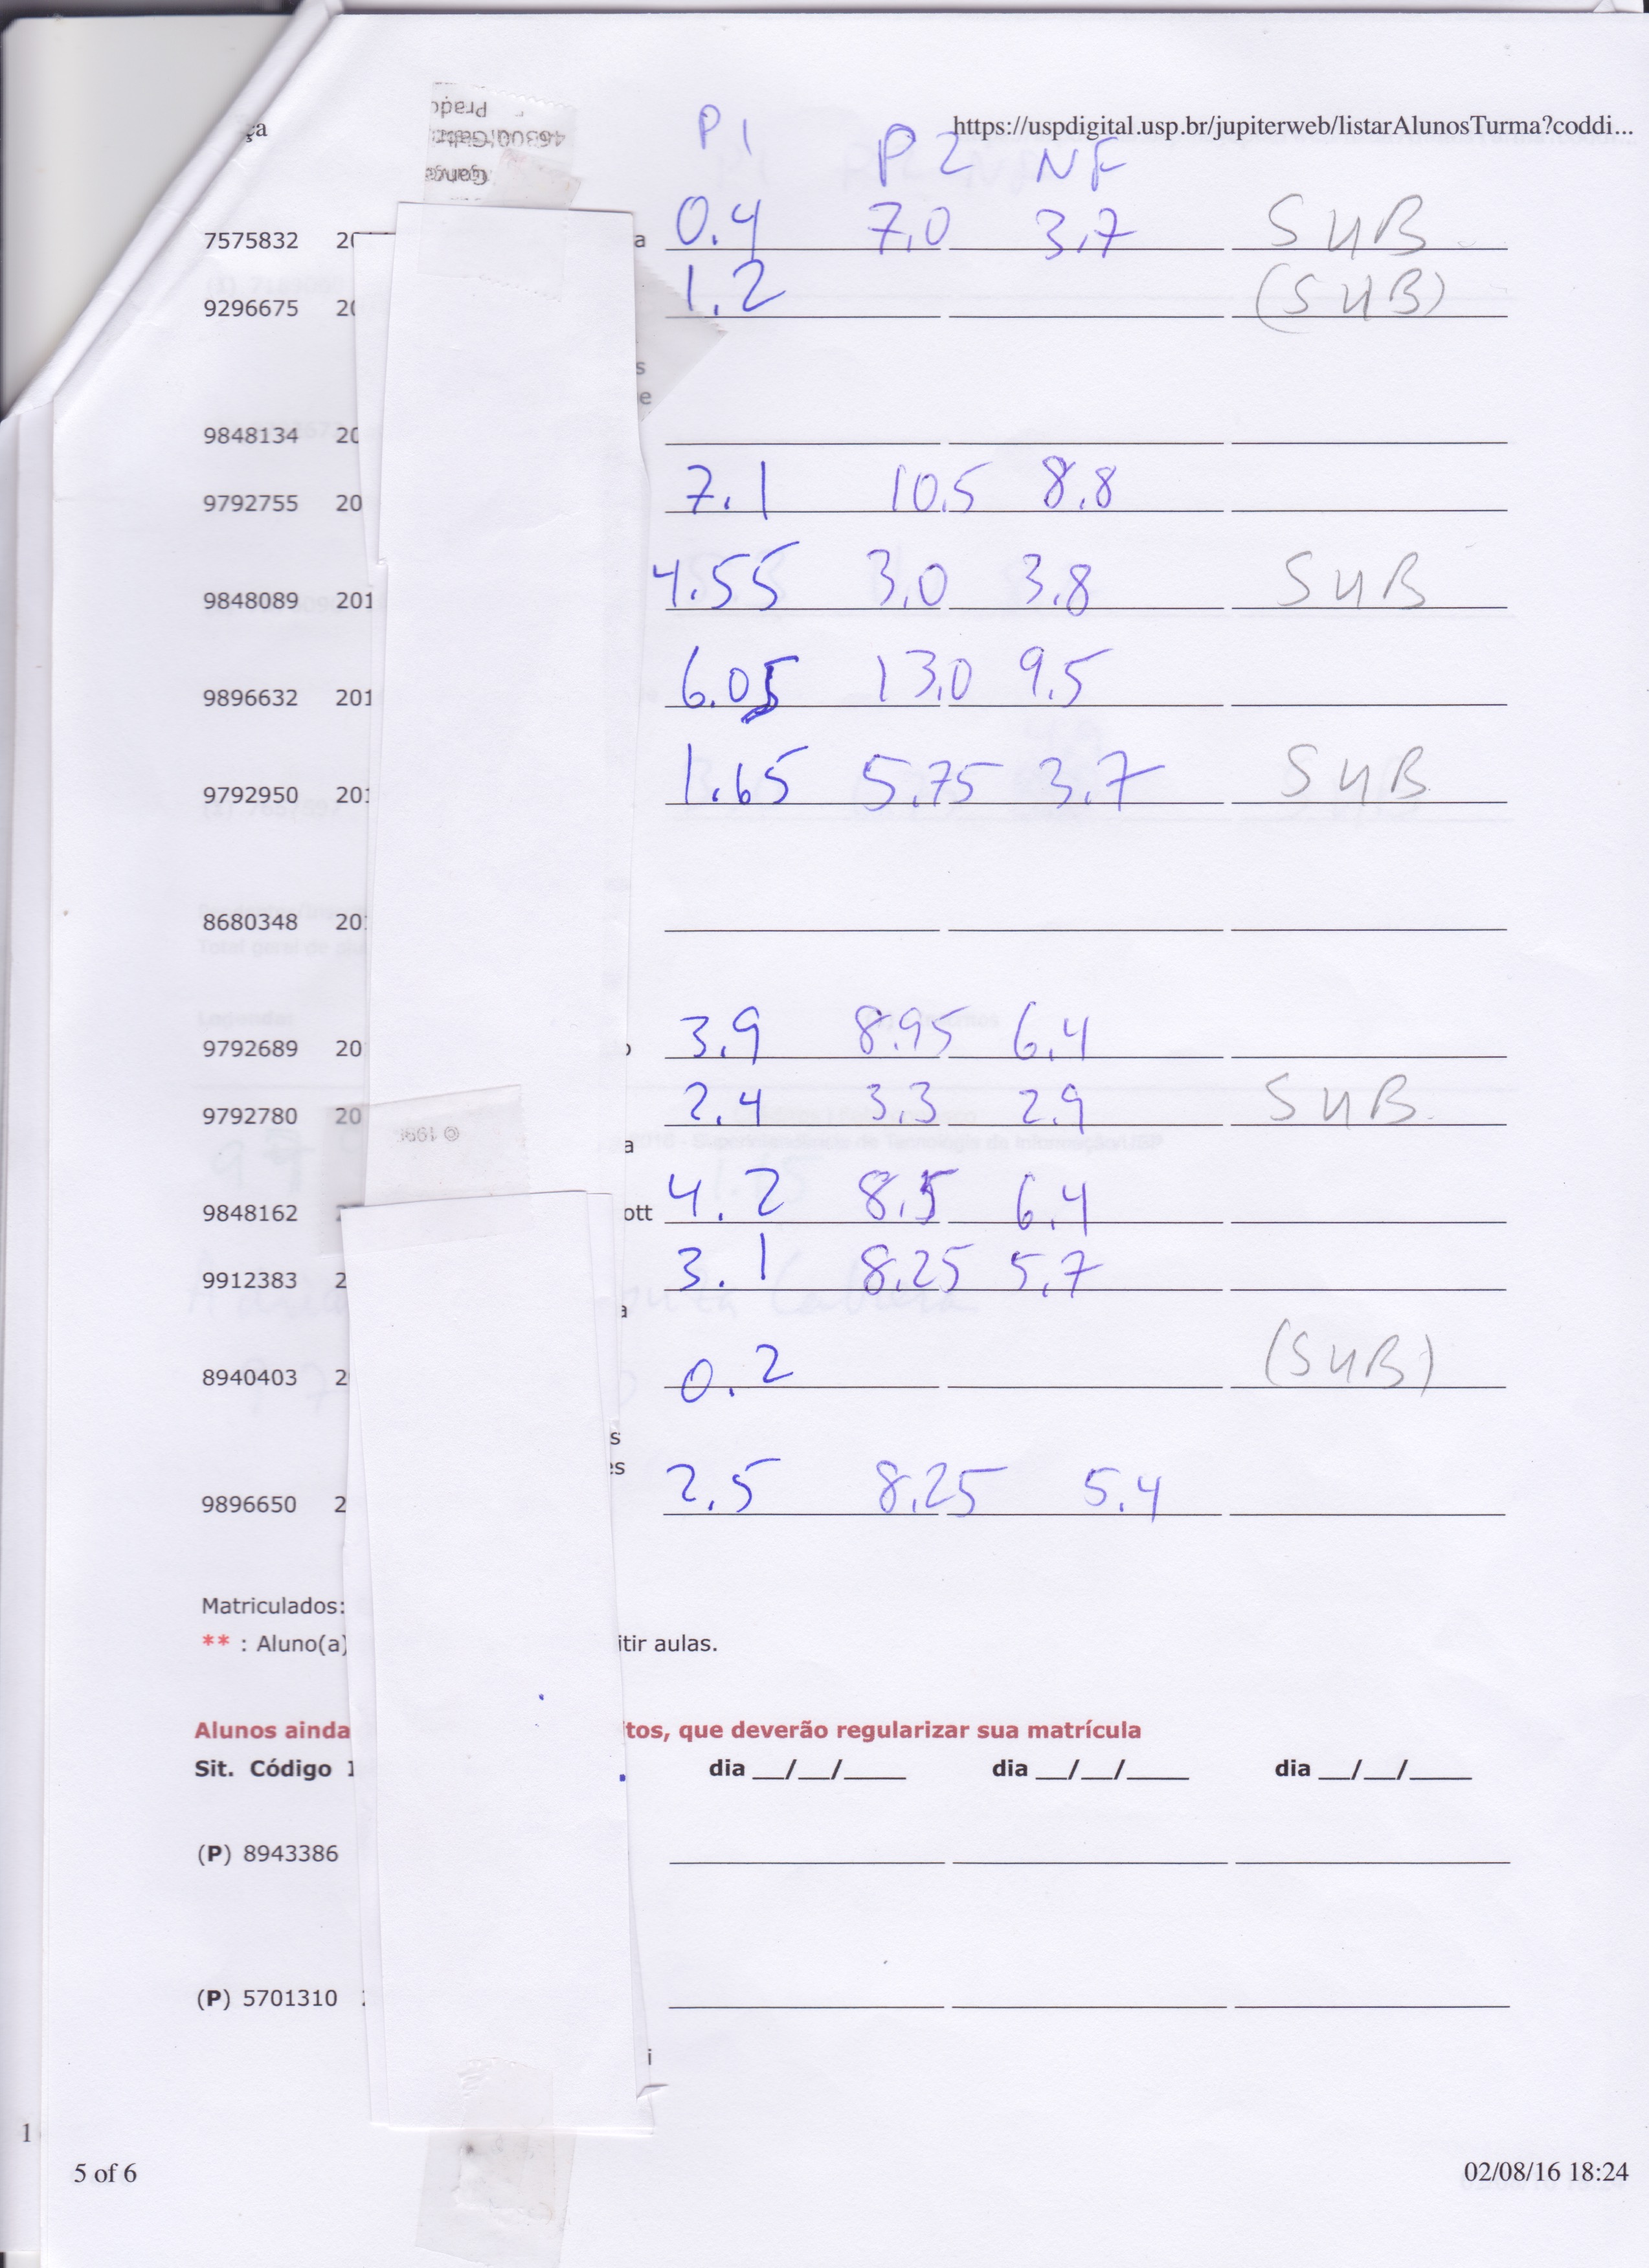 ça
P1
https://uspdigital.usp.br/jupiterweb/listarAlunosTurma?coddi...
P2 NF
7575832 a 0.4 7,0 3,7 SUB
9296675 1.2 (SUB)
s
e
9848134
9792755 20 7.1 10.5 8.8
9848089 201 4.55 3,0 3.8 SUB
9896632 201 6.05 13,0 9.5
9792950 201 1.65 5.75 3,7 SUB
8680348 20
9792689 20 3.9 8.95 6.4
9792780 20 2.4 3.3 2.9 SUB
a
9848162 ott 4.2 8.5 6.4
9912383 2 3.1 8.25 5,7
a
8940403 2 0.2 (SUB)
s
es
9896650 2 2.5 8.25 5.4
Matriculados:
** : Aluno(a) itir aulas.
Alunos ainda tos, que deverão regularizar sua matrícula
Sit. Código dia __/__/____ dia __/__/____ dia __/__/____
(P) 8943386
(P) 5701310
i
1
5 of 6 02/08/16 18:24